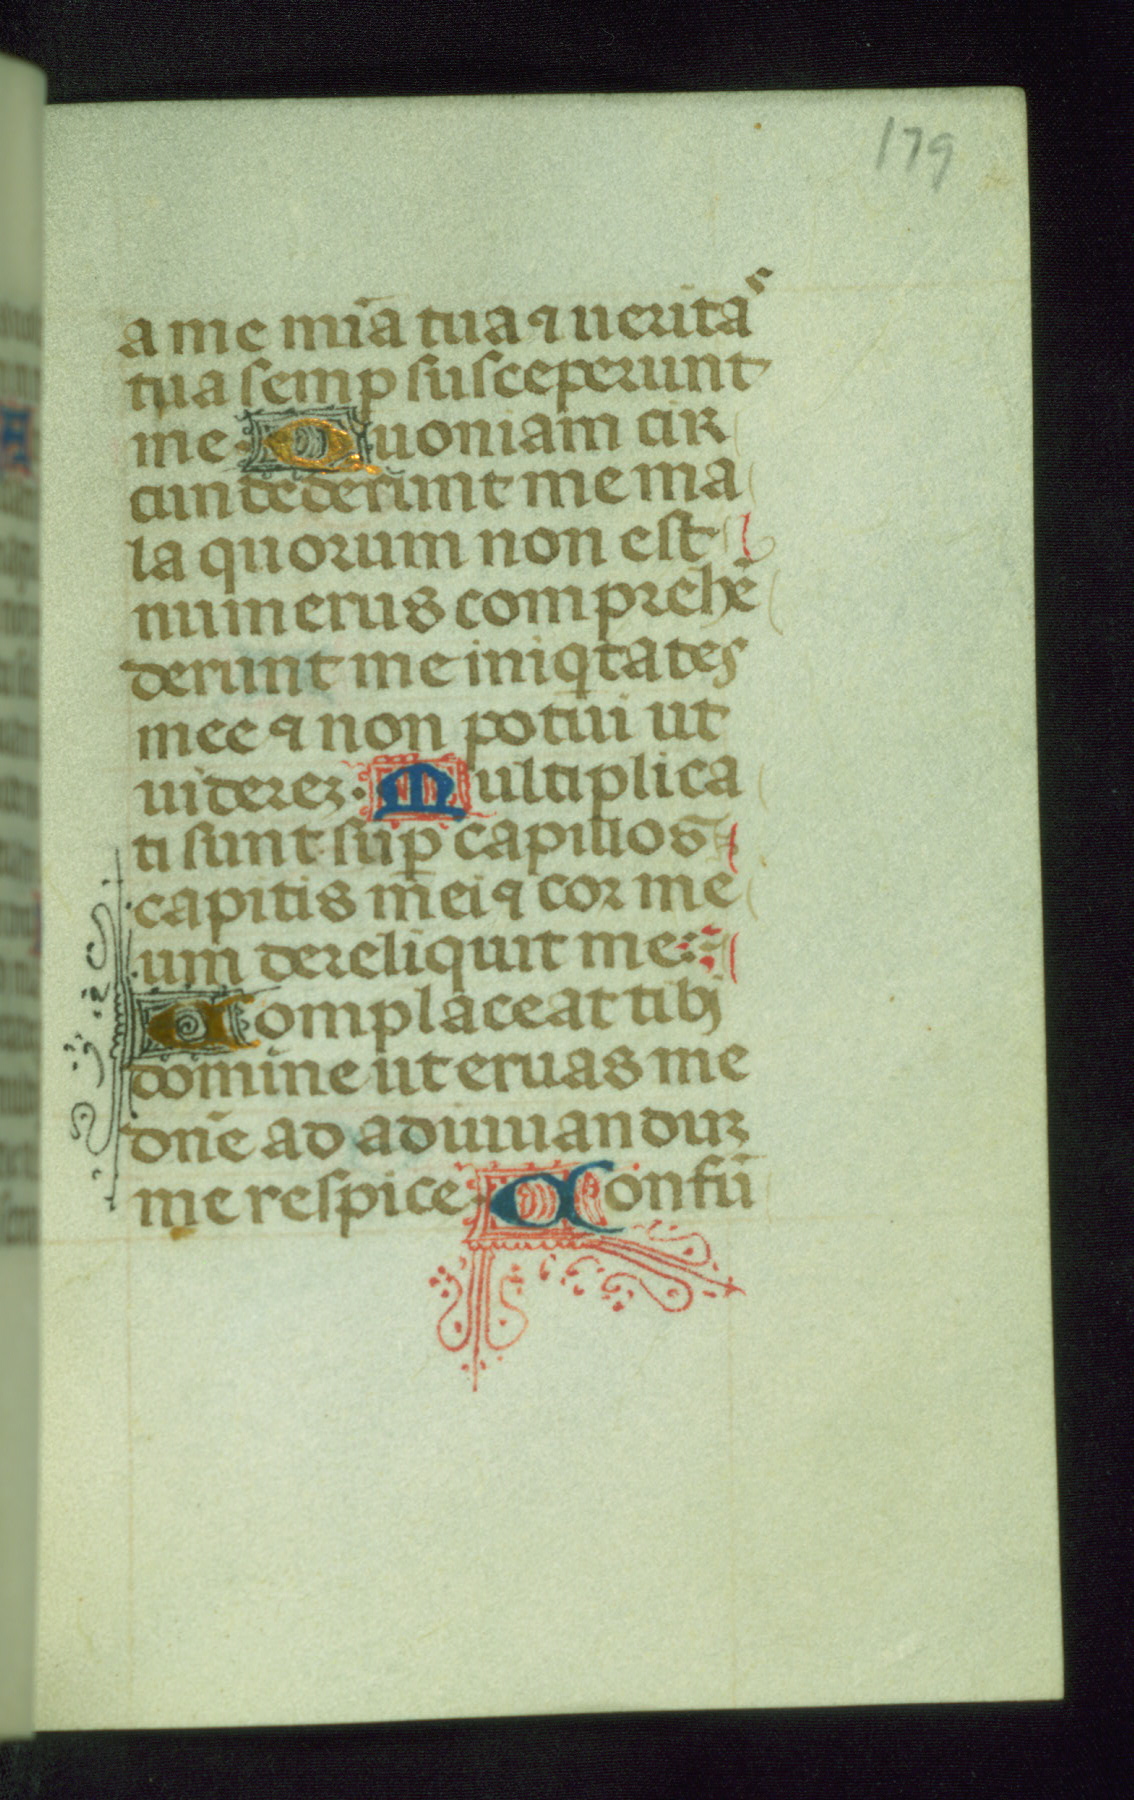 179
a me mĩa tua ⁊ uerita^s
tua semp̱ susceperunt
me· Quoniam cir
cundederunt me ma
la quorum non est
numerus comprehẽ
derunt me iniq̱tates
mee ⁊ non potui ut
uiderez· Multiplica
ti sunt sup̱ capillos
capitis mei ⁊ cor me
um dereliquit me:
Complaceat tibi
domine ut eruas me
dñe ad adiuuanduz
me respice· Confũ